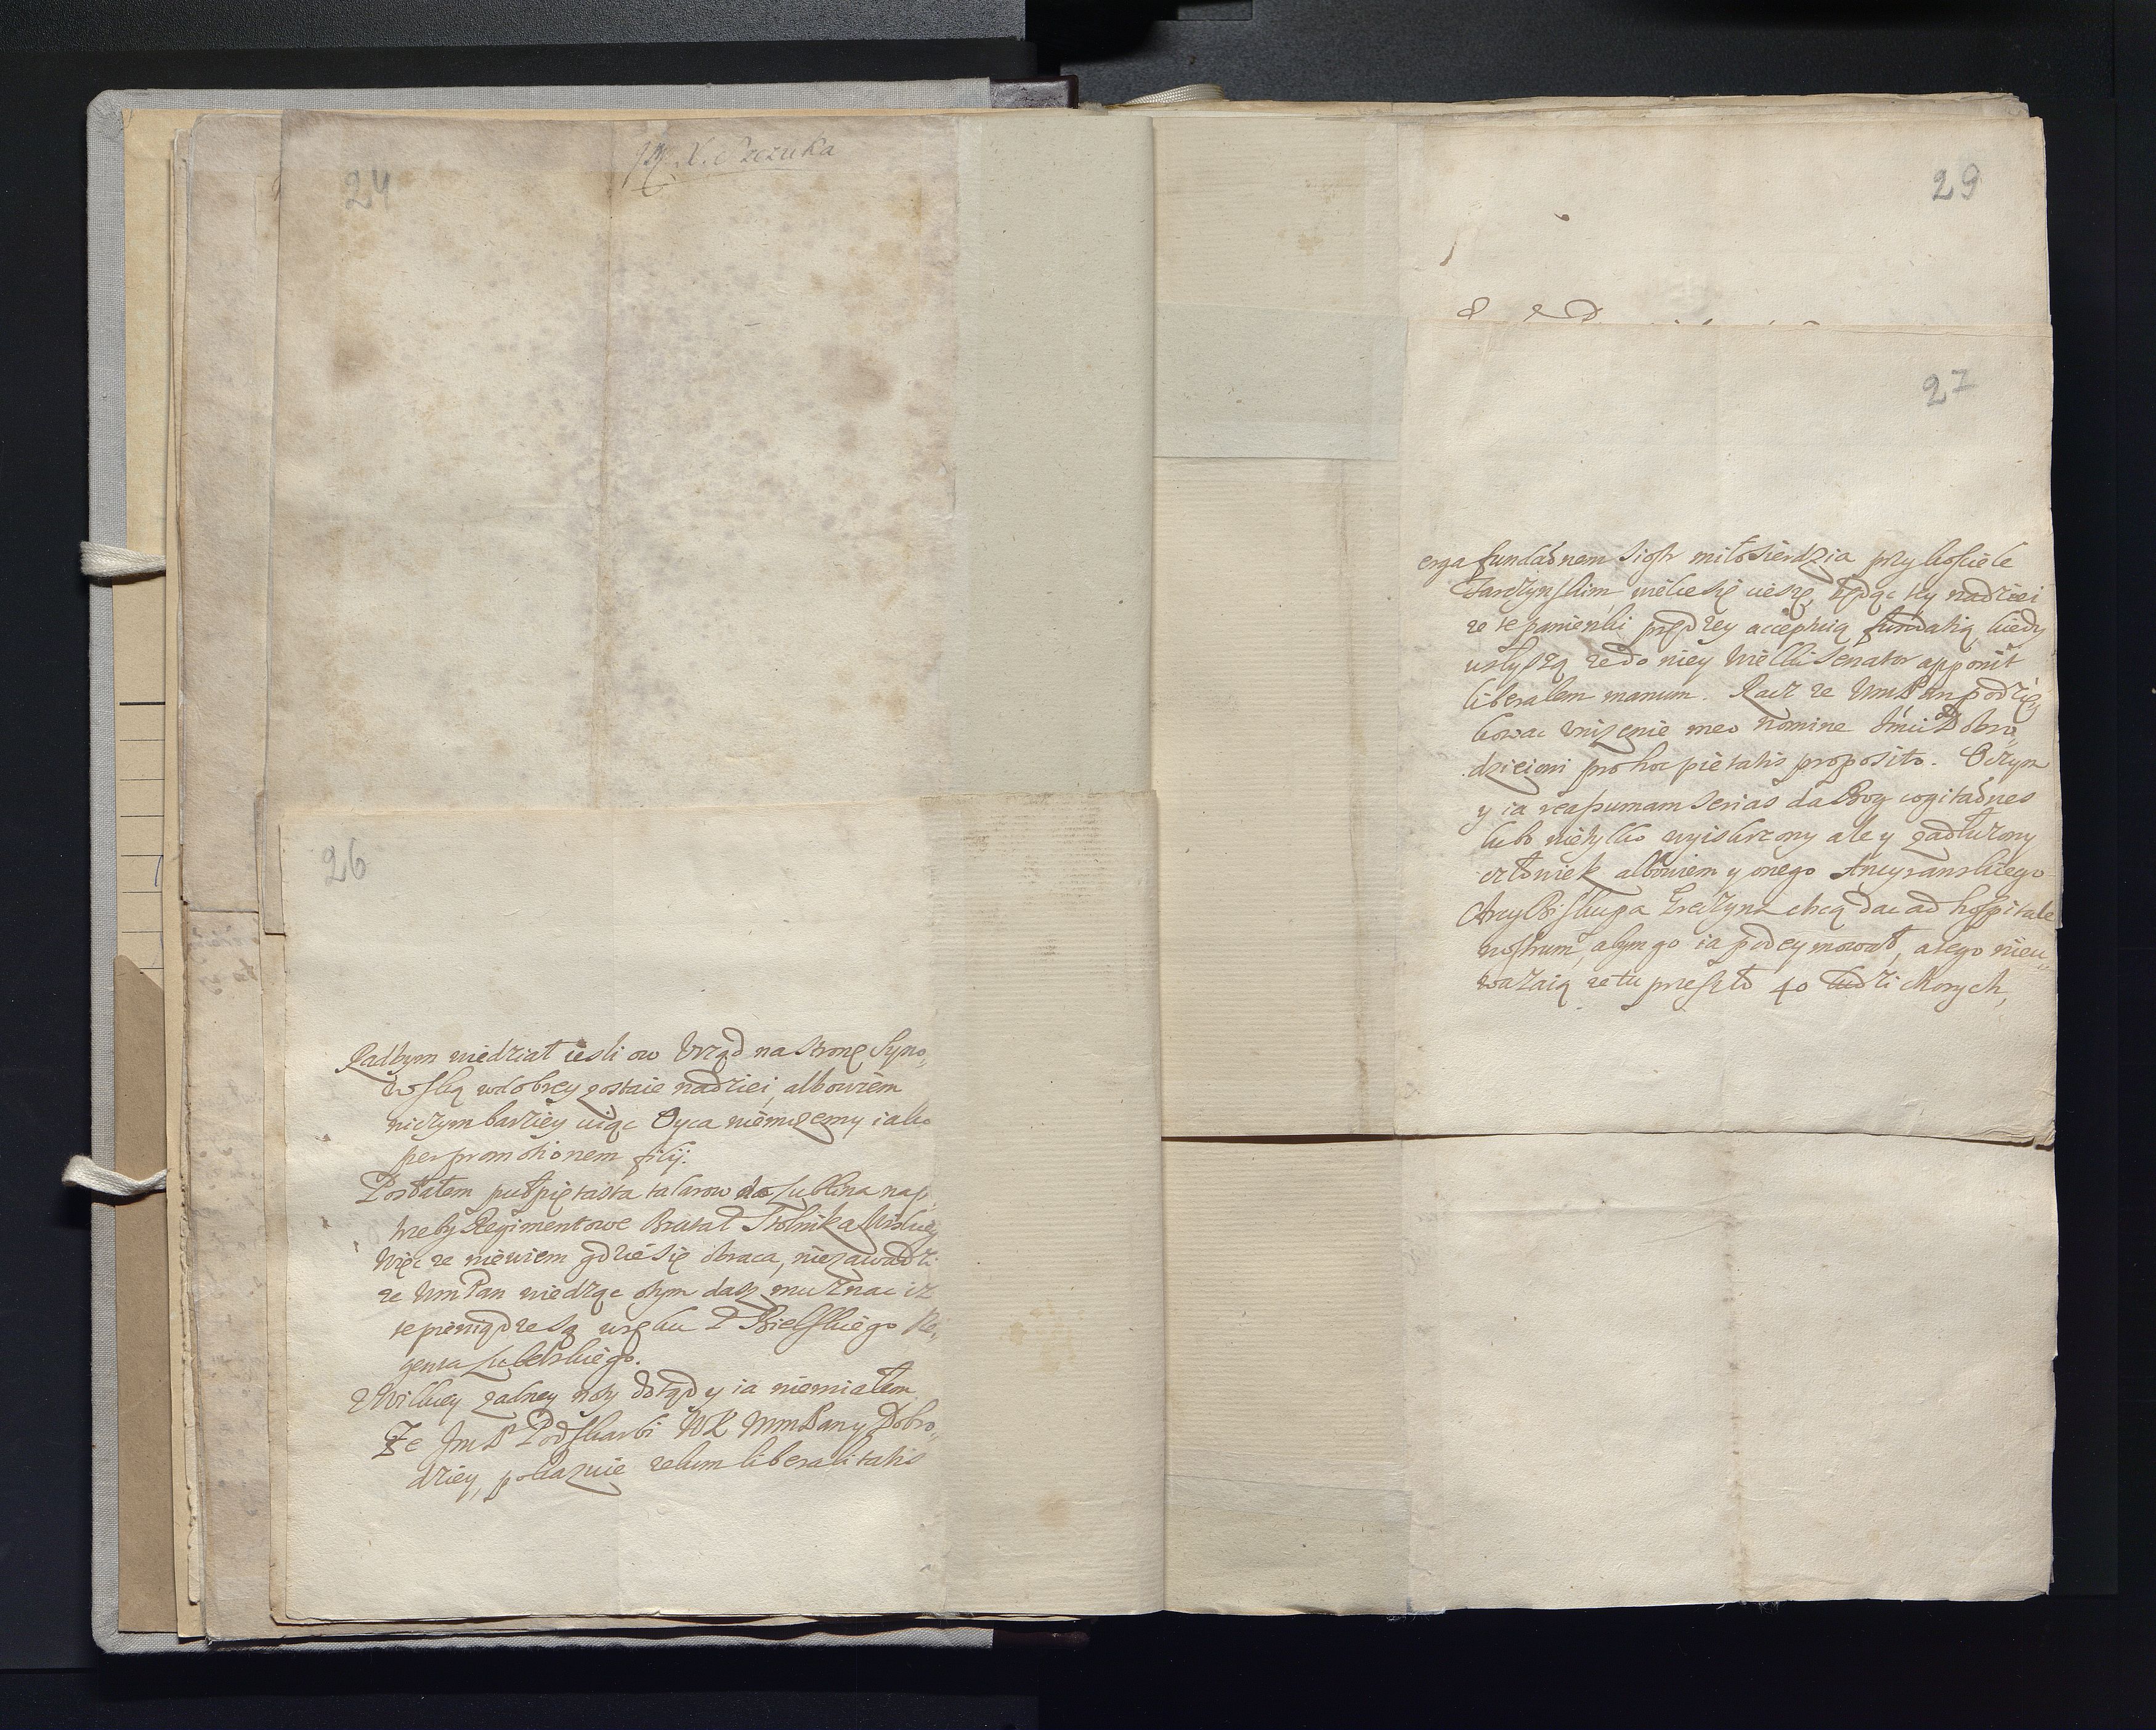 24
JM X. Szczuka
26
Radbym wiedział iesli ow Vrząd na stronę Syno„
wską w dobrey zostaie nadziei, albowiem
niczym bardziey uiąc Oyca niemozemy iako
per promotionem filij.
Posłałem pułpiętasta talarow do Lublina na po
trzeby Regimentowe Brata Stolnika
Więc ze niewiem gdzie się obraca, niezawadzi
ze WmPan wiedząc otym dasz mu znac iz
te pieniądze są w ręku P Bielskiego Re„
genta Lubelskiego.
Z Wilkiey zadney dotąd y ia niemiałem
Ze JmP Podskarbi WK MmPan y Dobro„
dziey, pokazuie zelum liberalitatis
29
27
erga fundaõnem Siostr miłosierdzia przy kosciele
Tarczynskim wielce się cieszę, będąc tey nadziei
ze te panienki prędzey acceptuią fundatią kiedy
usłyszą ze do niey Wielki Senator apponit
liberalem manum. Racz ze WmPan podzię„
kowac unizenie meo nomine Jmci Dobro„
dzieiowi pro hoc pietatis proposito. Oczym
y ia reassumam serias da Bog cogitaões
lubo nietylko wyiskrzony ale y zadłuzony
człowiek albowiem y onego Ancyranskiego
ArcyBiskupa Greczyna chcą dac ad hospitale
nostrum, abym go ia podeymował, a tego nieu„
wazaią ze tu przeszło 40 ludzi chorych,